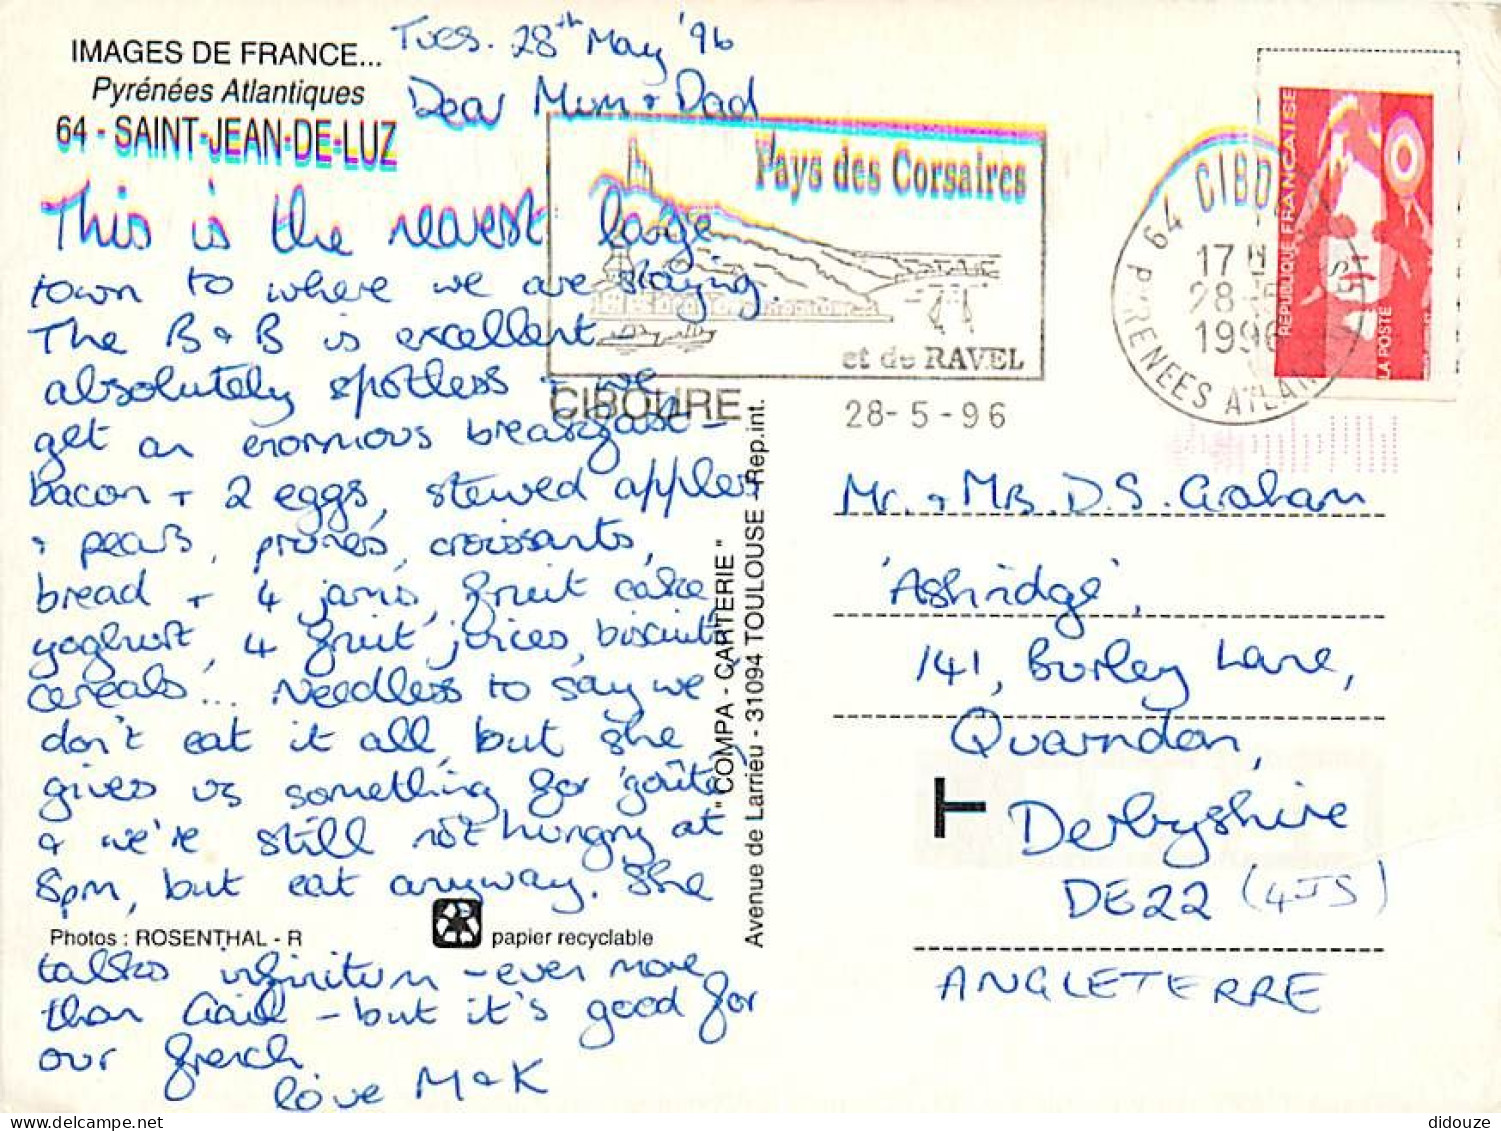 IMAGES DE FRANCE...
Pyrénées Atlantiques
64 - SAINT-JEAN-DE-LUZ
Tues. 28th May '96
Dear Mum + Dad
This is the nearest large
town to where we are staying.
The B & B is excellent -
absolutely spotless + we
get an enormous breakfast -
bacon + 2 eggs, stewed apples
+ pears, prunes, croissants,
bread + 4 jams, fruit cake,
yoghurt, 4 fruit juices, biscuits
cereals... Needless to say we
don't eat it all, but she
gives us something for 'goûter'
& we're still not hungry at
8pm, but eat anyway. She
Photos : ROSENTHAL - R
papier recyclable
talks infinitum - even more
than Gail - but it's good for
our french.
love M & K
"COMPA - CARTERIE"
Avenue de Larrieu - 31094 TOULOUSE - Rep.int.
Pays des Corsaires
et de RAVEL
CIBOURE
28-5-96
64 CIBO
17 H
28-5
1996
PYRENEES ATLAN
REPUBLIQUE FRANCAISE
LA POSTE
Mr. + Mrs. D.S. Graham
'Ashridge',
141, Burley Lane,
Quarndon,
T
Derbyshire
DE22 (4JS)
ANGLETERRE
didouze